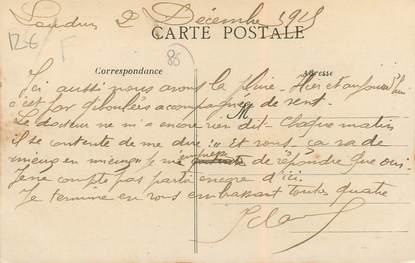 2 Décembre 1915
CARTE POSTALE
126
F
85
Correspondance
Adresse
Ici aussi nous avons la pluie. Hier et aujourd'hui
c'est par giboulées accompagnées de vent.
M
Le docteur ne m'a encore rien dit. Chaque matin
il se contente de me dire : "Et vous, ça va de
mieux en mieux". Je m'empresse de répondre que oui.
Je ne compte pas partir encore d'ici.
Je termine en vous embrassant toutes quatre